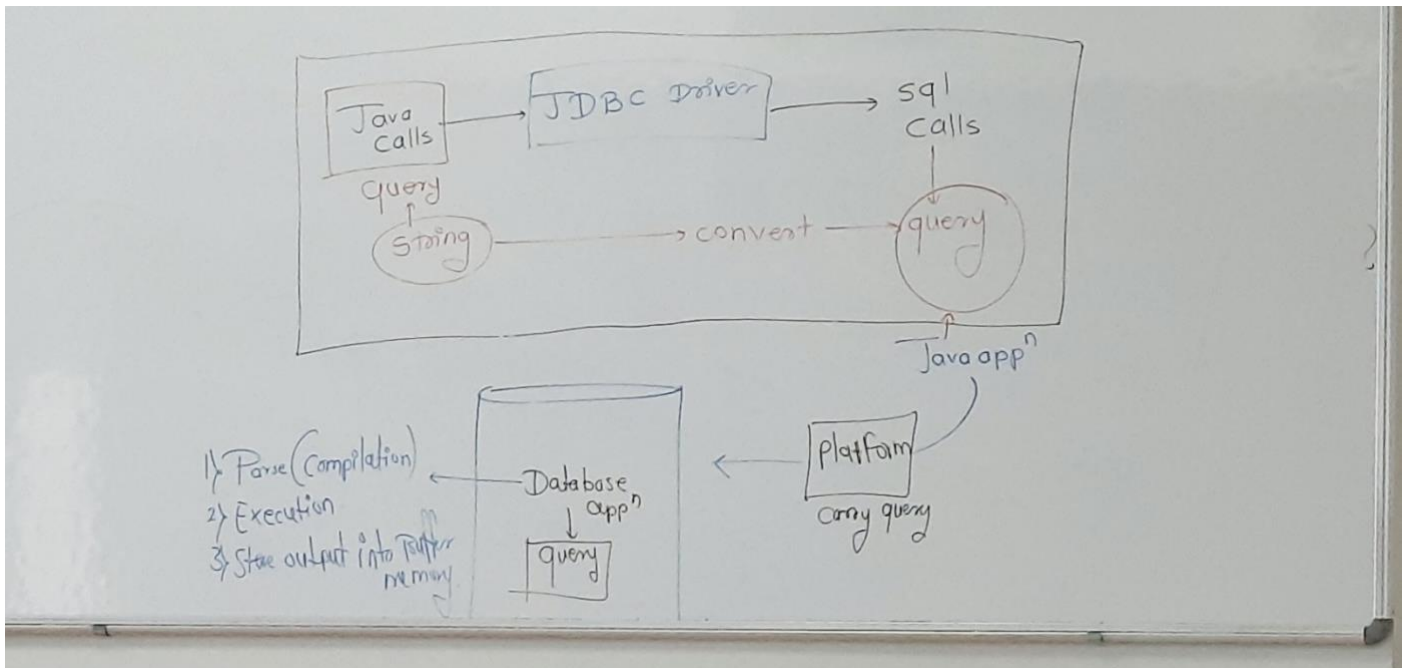 Java
calls
JDBC Driver
sql
calls
query
String
convert
query
Java appⁿ
Platform
carry query
Database
appⁿ
query
1) Parse (Compilation)
2) Execution
3) Store output into Buffer
memory